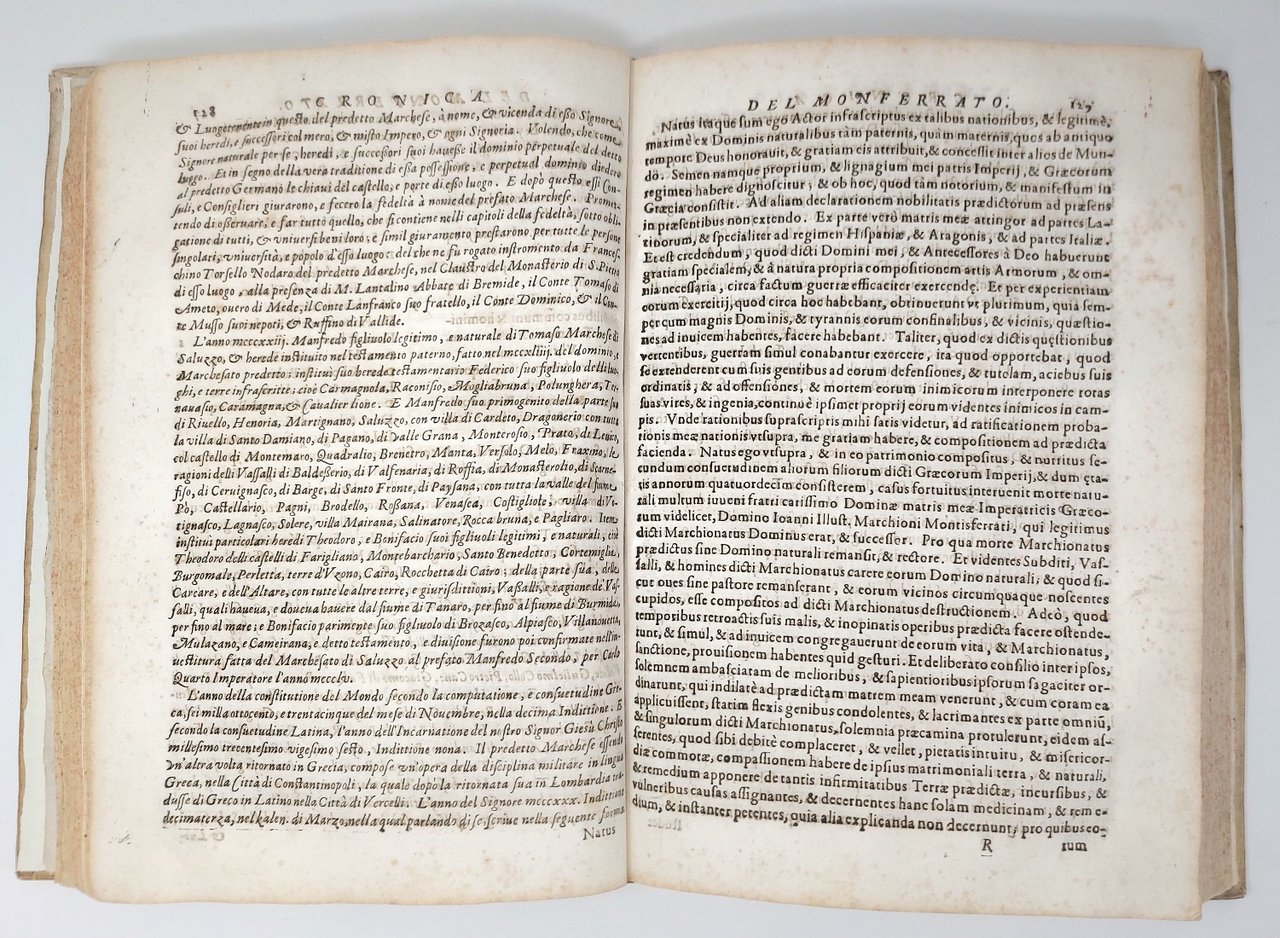 128
& Luogotenente in questo del predetto Marchese, à nome, & vicenda di esso Signore,
suoi heredi, e successori col mero, & misto Impero, & ogni Signoria. Volendo, che come
Signore naturale per se, heredi, e successori suoi hauesse il dominio perpetuale del detto
luogo. Et in segno della vera traditione di essa possessione, e perpetual dominio diedero
al predetto Germano le chiaui del castello, e porte di esso luogo. E dopò questo essi Con-
suli, e Consiglieri giurarono, e fecero la fedeltà à nome del prefato Marchese. Promet-
tendo di osseruare, e far tutto quello, che si contiene nelli capitoli della fedeltà, sotto obli-
gatione di tutti, & vniuersi beni loro; e simil giuramento prestarono per tutte le persone
singolari, vniuersità, e popolo d'esso luogo: del che ne fù rogato instromento da Frances-
chino Torsello Nodaro del predetto Marchese, nel Claustro del Monasterio di S. Pietro
di esso luogo, alla presenza di M. Lantalino Abbate di Bremide, il Conte Tomaso di
Ameto, ouero di Mede, il Conte Lanfranco suo fratello, il Conte Dominico, & il Con-
te Musso suoi nepoti, & Ruffino di Vallide.
L'anno mccccxxiij. Manfredo figliuolo legitimo, e naturale di Tomaso Marchese di
Saluzzo, & herede instituito nel testamento paterno, fatto nel mccxliiij. del dominio, e
Marchesato predetto: instituì suo herede testamentario Federico suo figliuolo delli luo-
ghi, e terre infrascritte: cioè Carmagnola, Raconisio, Mogliabruna, Polunghera, Ter-
nauasio, Caramagna, & Caualier lione. E Manfredo suo primogenito della parte sua
di Riuello, Henoria, Martignano, Saluzzo, con villa di Cardeto, Dragonerio con tutta
la villa di Santo Damiano, di Pagano, di Valle Grana, Monterosio, Prato, di Leuico,
col castello di Montemaro, Quadralio, Brenetro, Manta, Versolo, Melo, Fraxino, le
ragioni delli Vassalli di Baldesserio, di Valfenaria, di Roffia, di Monasterolio, di Scarne-
fiso, di Ceruignasco, di Barge, di Santo Fronte, di Paysana, con tutta la valle del fiume
Pò, Castellario, Pagni, Brodello, Rossana, Venasca, Costigliole, villa di Vi-
tignasco, Lagnasco, Solere, villa Mairana, Salinator, Rocca bruna, e Pagliaro. Item
instituì particolari heredi Theodoro, e Bonifacio suoi figliuoli legitimi, e naturali, cioè
Theodoro delli castelli di Farigliano, Montebarchario, Santo Benedetto, Cortemiglia,
Burgomale, Perletta, terre d'Vzono, Cairo, Rocchetta di Cairo; della parte sua, delle
Carcare, e dell'Altare, con tutte le altre terre, e giurisdittioni, Vassalli, e ragione de' Vas-
salli, quali haueua, e doueua hauere dal fiume di Tanaro, per fino al fiume di Burmide,
per fino al mare; e Bonifacio parimente suo figliuolo di Brozasco, Alpiasco, Villanouetta,
Mulazano, e Cameirana, e detto testamento, e diuisione furono poi confirmate nell'in-
uestitura fatta del Marchesato di Saluzzo al prefato Manfredo Secondo, per Carlo
Quarto Imperatore l'anno mccclv.
L'anno della constitutione del Mondo secondo la computatione, e consuetudine Gre-
ca, sei milla ottocento, e trentacinque del mese di Nouembre, nella decima Indittione. E
secondo la consuetudine Latina, l'anno dell'Incarnatione del nostro Signor Giesù Christo
millesimo trecentesimo vigesimo sesto, Indittione nona. Il predetto Marchese essendo
vn'altra volta ritornato in Grecia, compose vn'opera della disciplina militare in lingua
Greca, nella Città di Constantinopoli, la quale dopò la ritornata sua in Lombardia tra-
dusse di Greco in Latino nella Città di Vercelli. L'anno del Signore mcccxxx. Indittione
decimaterza, nel kalen. di Marzo, nella qual parlando di se, scriue nella seguente forma
Natus
DEL MONFERRATO. 129
Natus itaque sum ego Actor infrascriptus ex talibus nationibus, & legitimè,
maximè ex Dominis naturalibus tàm paternis, quàm maternis, quos ab antiquo
tempore Deus honorauit, & gratiam eis attribuit, & concessit inter alios de Mun-
dò. Semen namque proprium, & lignagium mei patris Imperij, & Græcorum
regimen habere dignoscitur; & ob hoc, quod tàm notorium, & manifestum in
Græcia consistit. Ad aliam declarationem nobilitatis prædictorum ad præsens
in præsentibus non extendo. Ex parte verò matris meæ attingor ad partes La-
tinorum, & specialiter ad regimen Hispaniæ, & Aragonis, & ad partes Italiæ.
Et est credendum, quod dicti Domini mei, & Antecessores à Deo habuerunt
gratiam specialem, & à natura propria compositionem artis Armorum, & om-
nia necessaria, circa factum guerræ efficaciter exercendę. Et per experientiam
eorum exercitij, quod circa hoc habebant, obtinuerunt vt plurimum, quia sem-
per cum magnis Dominis, & tyrannis eorum confinalibus, & vicinis, quæstio-
nes ad inuicem habentes, facere habebant. Taliter, quod ex dictis quęstionibus
vertentibus, guerram simul conabantur exercere, ita quod opportebat, quod
se extenderent cum suis gentibus ad eorum defensiones, & tutelam, aciebus suis
ordinatis, & ad offensiones, & mortem eorum inimicorum interponere totas
suas vires, & ingenia, continuè ipsimet proprij eorum videntes inimicos in cam-
pis. Vnde rationibus suprascriptis mihi satis videtur, ad ratificationem proba-
tionis meæ nationis vtsupra, me gratiam habere, & compositionem ad prædicta
facienda. Natus ego vtsupra, & in eo patrimonio compositus, & nutritus se-
cundum consuetudinem aliorum filiorum dicti Græcorum Imperij, & dum ęta-
tis annorum quatuordecim consisterem, casus fortuitus interuenit morte natu-
rali multum iuueni fratri carissimo Dominæ matris meæ Imperatricis Græco-
rum videlicet, Domino Ioanni Illust. Marchioni Montisferrati, qui legitimus
dicti Marchionatus Dominus erat, & successer. Pro qua morte Marchionatus
prædictus sine Domino naturali remansit, & rectore. Et videntes Subditi, Vas-
salli, & homines dicti Marchionatus carere eorum Domino naturali; & quod si-
cut oues sine pastore remanserant, & eorum vicinos circumquaque noscentes
cupidos, esse compositos ad dicti Marchionatus destructionem. Adeò, quod
temporibus retroactis suis malis, & inopinatis operibus prædicta facere ostende-
runt, & simul, & ad inuicem congregauerunt de eorum vita, & Marchionatus,
sanctione, prouisionem habentes quid gesturi. Et deliberato consilio inter ipsos,
solemnem ambasciatam de melioribus, & sapientioribus ipsorum sagaciter or-
dinarunt, qui indilatè ad prædictam matrem meam venerunt, & cum coram ea
applicuissent, statim flexis genibus condolentes, & lacrimantes ex parte omniũ,
& singulorum dicti Marchionatus, solemnia præcamina protulerunt, eidem as-
serentes, quod sibi debitè complaceret, & vellet, pietatis intuitu, & misericor-
diæ commotæ, compassionem habere de ipsius matrimoniali terra, & naturali,
& remedium apponere de tantis infirmitatibus Terræ prædictæ, incursibus, &
vulneribus causas assignantes, & decernentes hanc solam medicinam, & rem e-
dium, & instanter petentes, quia alia explicanda non decernunt; pro quibus eo-
R rum